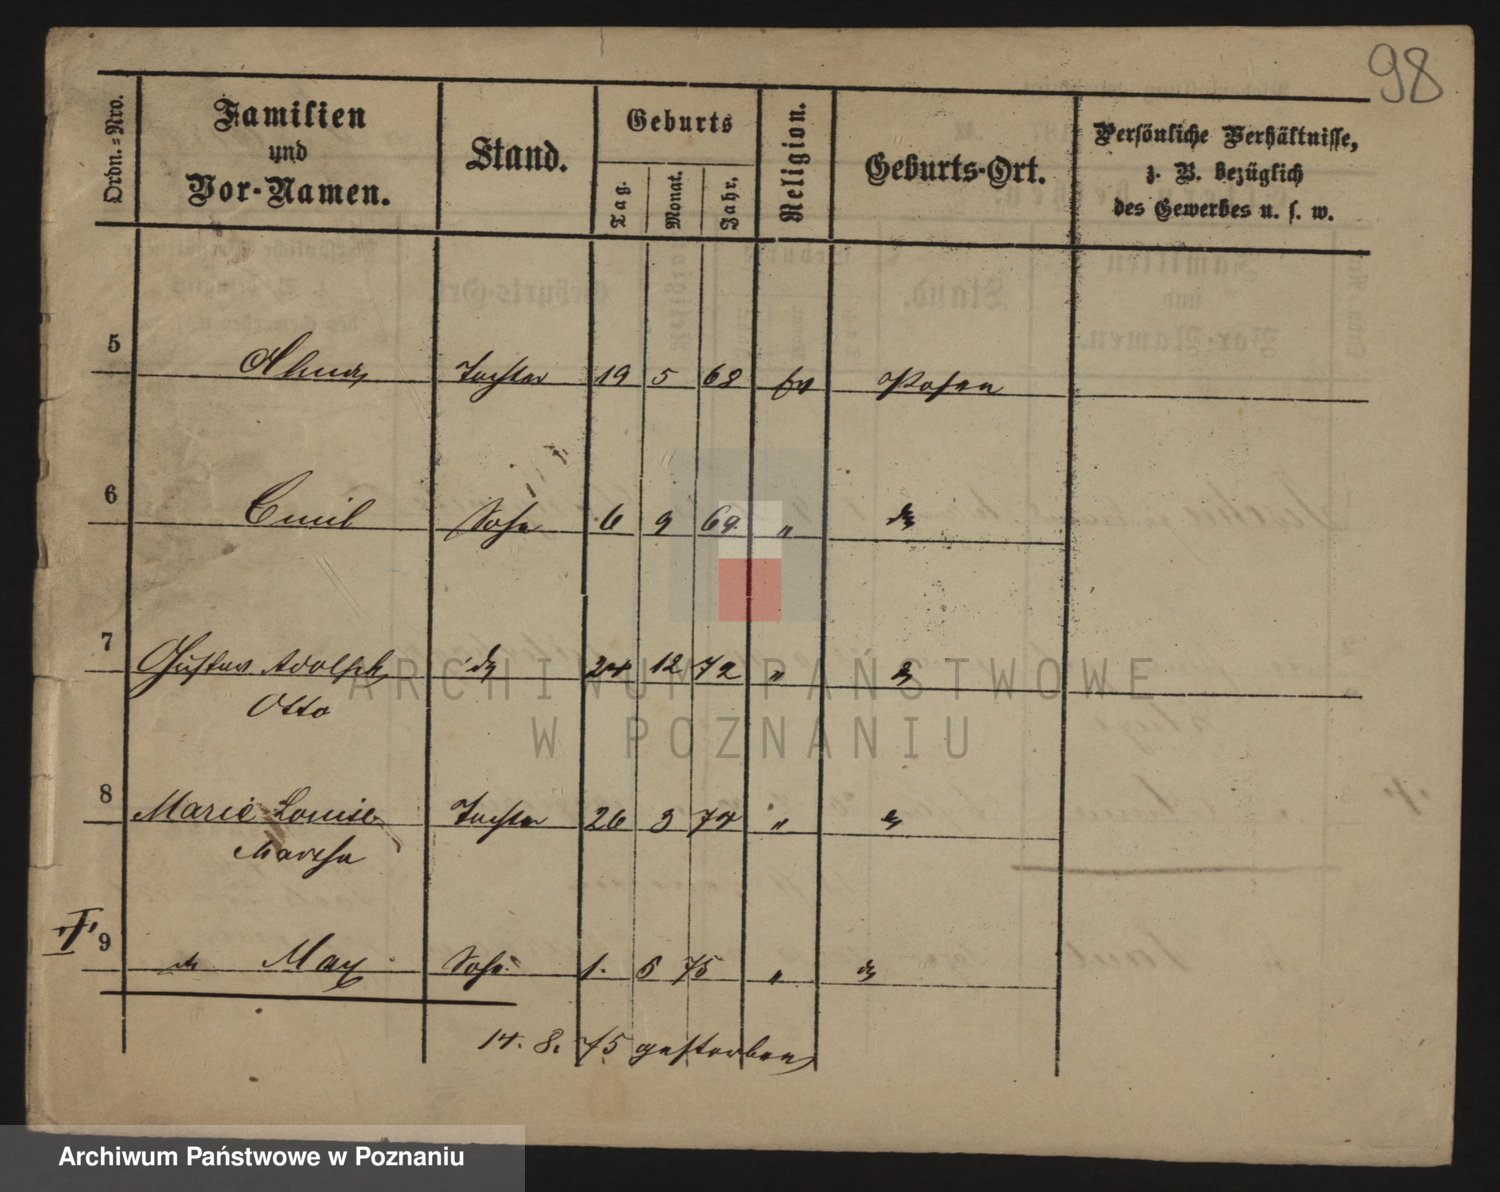 98
Ordn.=Nro. Familien und Vor-Namen. Stand. Geburts Tag. Monat. Jahr. Religion. Geburts-Ort. Persönliche Verhältnisse, z. B. bezüglich des Gewerbes u. s. w.
5 Tochter 19 5 68 ev Posen
6 Emil Sohn 6 9 69 " do
7 Gustav Adolph do 24 12 72 " do
Otto
8 Marie Louise Tochter 26 3 74 " do
Martha
9 do Max Sohn 1. 6 75 " do
14. 8. 75 gestorben
ARCHIWUM PAŃSTWOWE
W POZNANIU
Archiwum Państwowe w Poznaniu